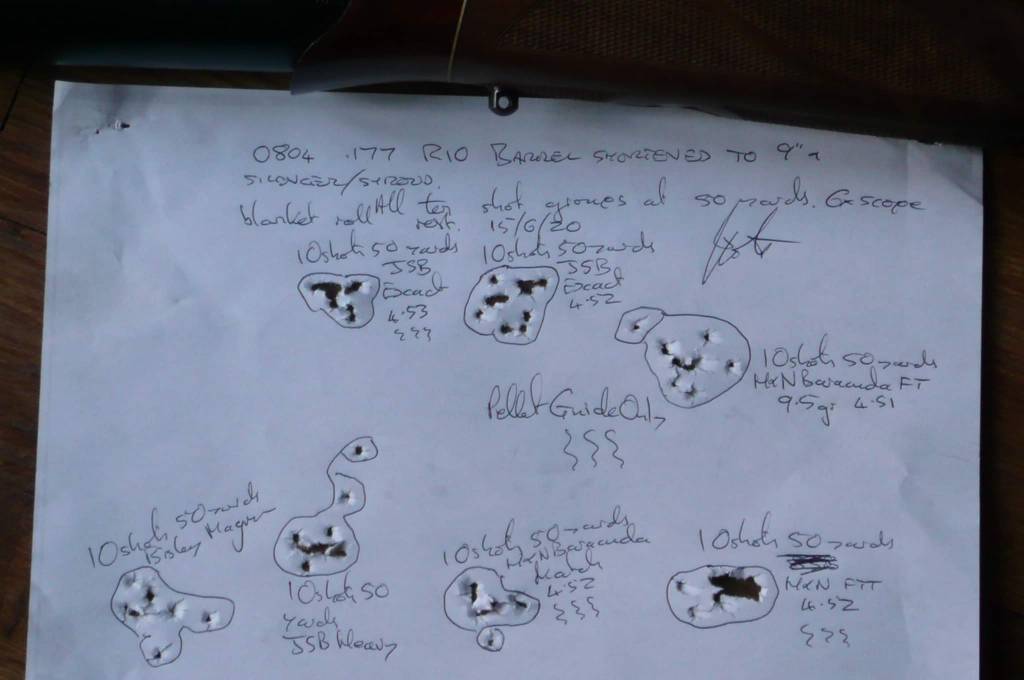 0804 .177 R10 BARREL SHORTENED TO 9"
SILENCER/SHROUD.
blanket roll All ten shot groups at 50 yards. 6x scope
rest. 15/6/20
10 shots 50 yards
JSB
Exact
4.53
10 shots 50 yards
JSB
Exact
4.52
10 shots 50 yards
H&N Baracuda FT
9.5gr 4.51
Pellet Guide Only
10 shots 50 yards
Bisley Magnum
10 shots 50
yards
JSB Heavy
10 shots 50 yards
H&N Baracuda
Match
4.52
10 shots 50 yards
H&N FTT
4.52